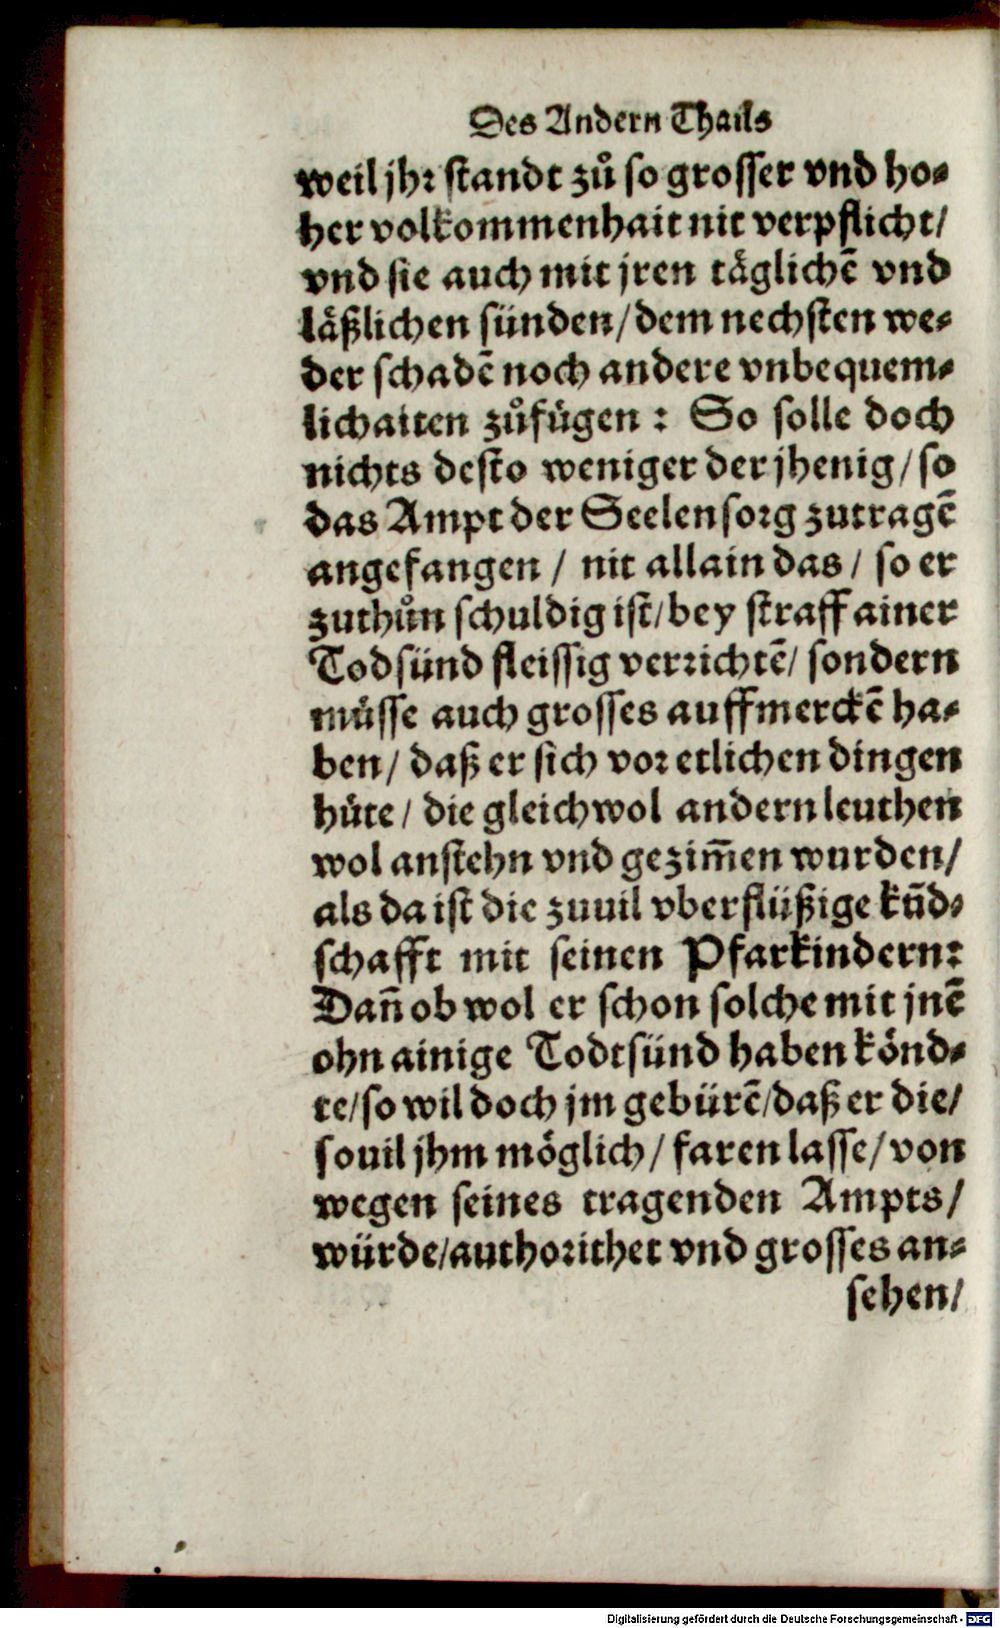 Des Andern Thails
weil jhr standt zů so grosser vnd ho-
her volkommenhait nit verpflicht/
vnd sie auch mit jren täglichē vnd
läßlichen sünden/dem nechsten we-
der schadē noch andere vnbequem-
lichaiten zůfügen: So solle doch
nichts desto weniger der jhenig/so
das Ampt der Seelensorg zutragē
angefangen / nit allain das / so er
zuthůn schuldig ist/bey straff ainer
Todsünd fleissig verrichtē/ sondern
müsse auch grosses auffmerckē ha-
ben/ daß er sich vor etlichen dingen
hüte / die gleichwol andern leuthen
wol anstehn vnd gezim̄en wurden/
als da ist die zuuil vberflüßige kūd-
schafft mit seinen Pfarkindern:
Dan̄ ob wol er schon solche mit jnē
ohn ainige Todtsünd haben könd-
te/so wil doch jm gebürē/daß er die/
souil jhm möglich / faren lasse/ von
wegen seines tragenden Ampts/
würde/authorithet vnd grosses an-
sehen/
Digitalisierung gefördert durch die Deutsche Forschungsgemeinschaft - DFG